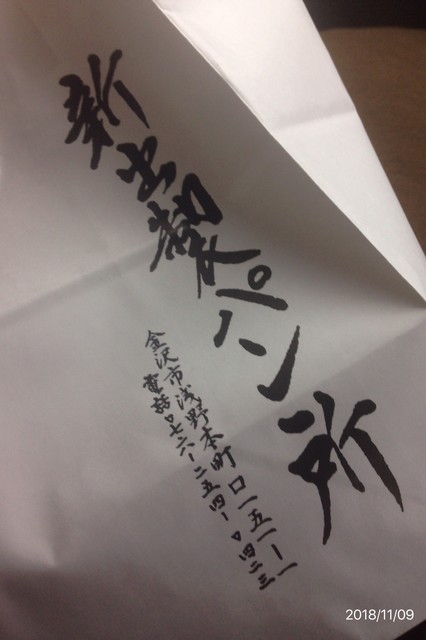 新出製パン所
金沢市浅野本町ロ一五一ー一
電話〇七六ー二五四ー〇四二三
2018/11/09